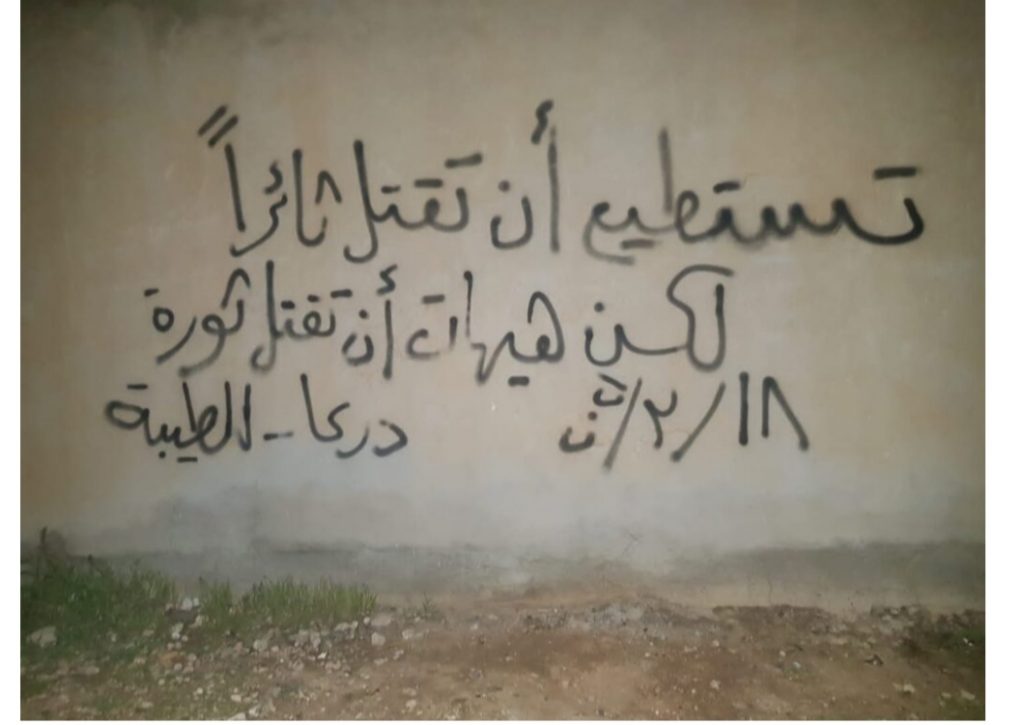 تستطيع أن تقتل ثائراً
لكن هيهات أن تقتل ثورة
١٨/٢/ درعا - الطيبة